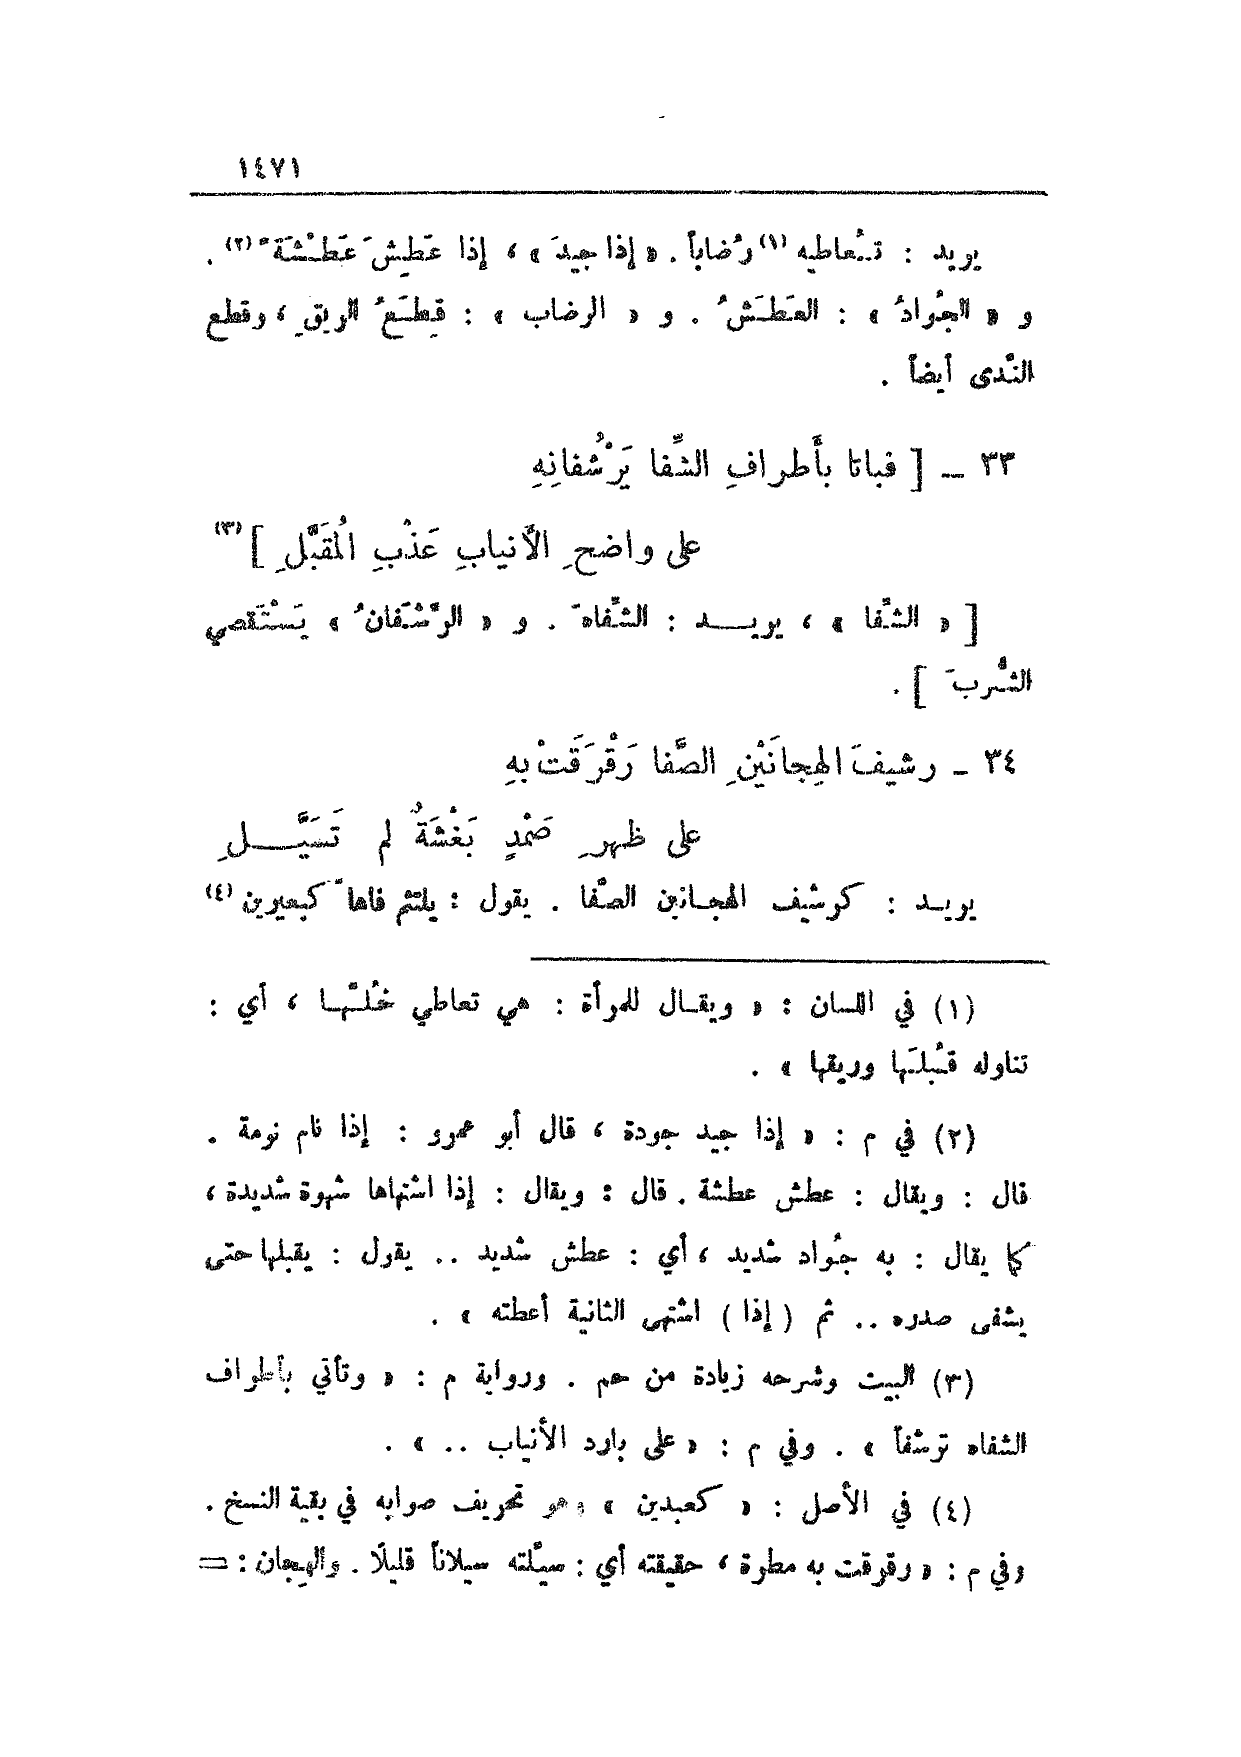 ١٤٧١
يريد : تُعاطيه (١) رُضاباً . « إذا جِيدَ » ، إذا عَطِشَ عَطْشَةً (٢) .
و « الجُوادُ » : العَطَشُ . و « الرضاب » : قِطَعُ الريقِ ، وقطع
النَّدى أيضاً .
٣٣ ـ [ فباتا بأَطرافِ الشِّفا يَرْشُفانِهِ
على واضحِ الأَنيابِ عَذْبِ المُقَبَّلِ ] (٣)
[ « الشِّفا » ، يريد : الشِّفاهَ . و « الرَّشَفانُ » يَسْتَقصي
الشُّربَ ] .
٣٤ ـ رشيفَ الهِجانَيْنِ الصَّفا رَقْرَقَتْ بهِ
على ظهرِ صَمْدٍ بَغْشَةٌ لم تَسَيَّلِ
يريد : كرشيف الهجانين الصَّفا . يقول : يلتثم فاها كبعيرين (٤)
(١) في اللسان : « ويقال للمرأة : هي تعاطي خُلَّتَها ، أي :
تناوله قُبلَتَها وريقها » .
(٢) في م : « إذا جيد جودة ، قال أبو عمرو : إذا نام نومة .
قال : ويقال : عطش عطشة . قال : ويقال : إذا اشتهاها شهوة شديدة ،
كما يقال : به جُواد شديد ، أي : عطش شديد .. يقول : يقبلها حتى
يشفى صدره .. ثم ( إذا ) اشتهى الثانية أعطته » .
(٣) البيت وشرحه زيادة من حم . ورواية م : « وتأتي بأطراف
الشفاه ترشفاً » . وفي م : « على بارد الأنياب .. » .
(٤) في الأصل : « كعبدين » وهو تحريف صوابه في بقية النسخ .
وفي م : « رقرقت به مطرة ، حقيقته أي : سيّلته سيلاناً قليلًا . والهِجان : =